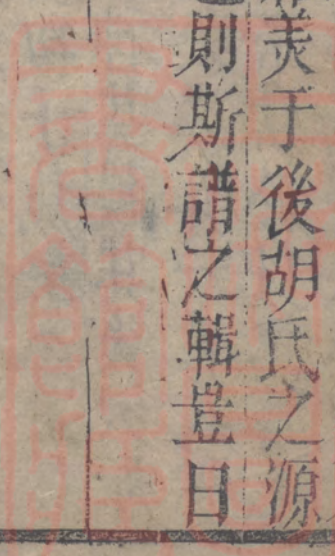 美于後胡氏之源
則斯譜之輯豈曰